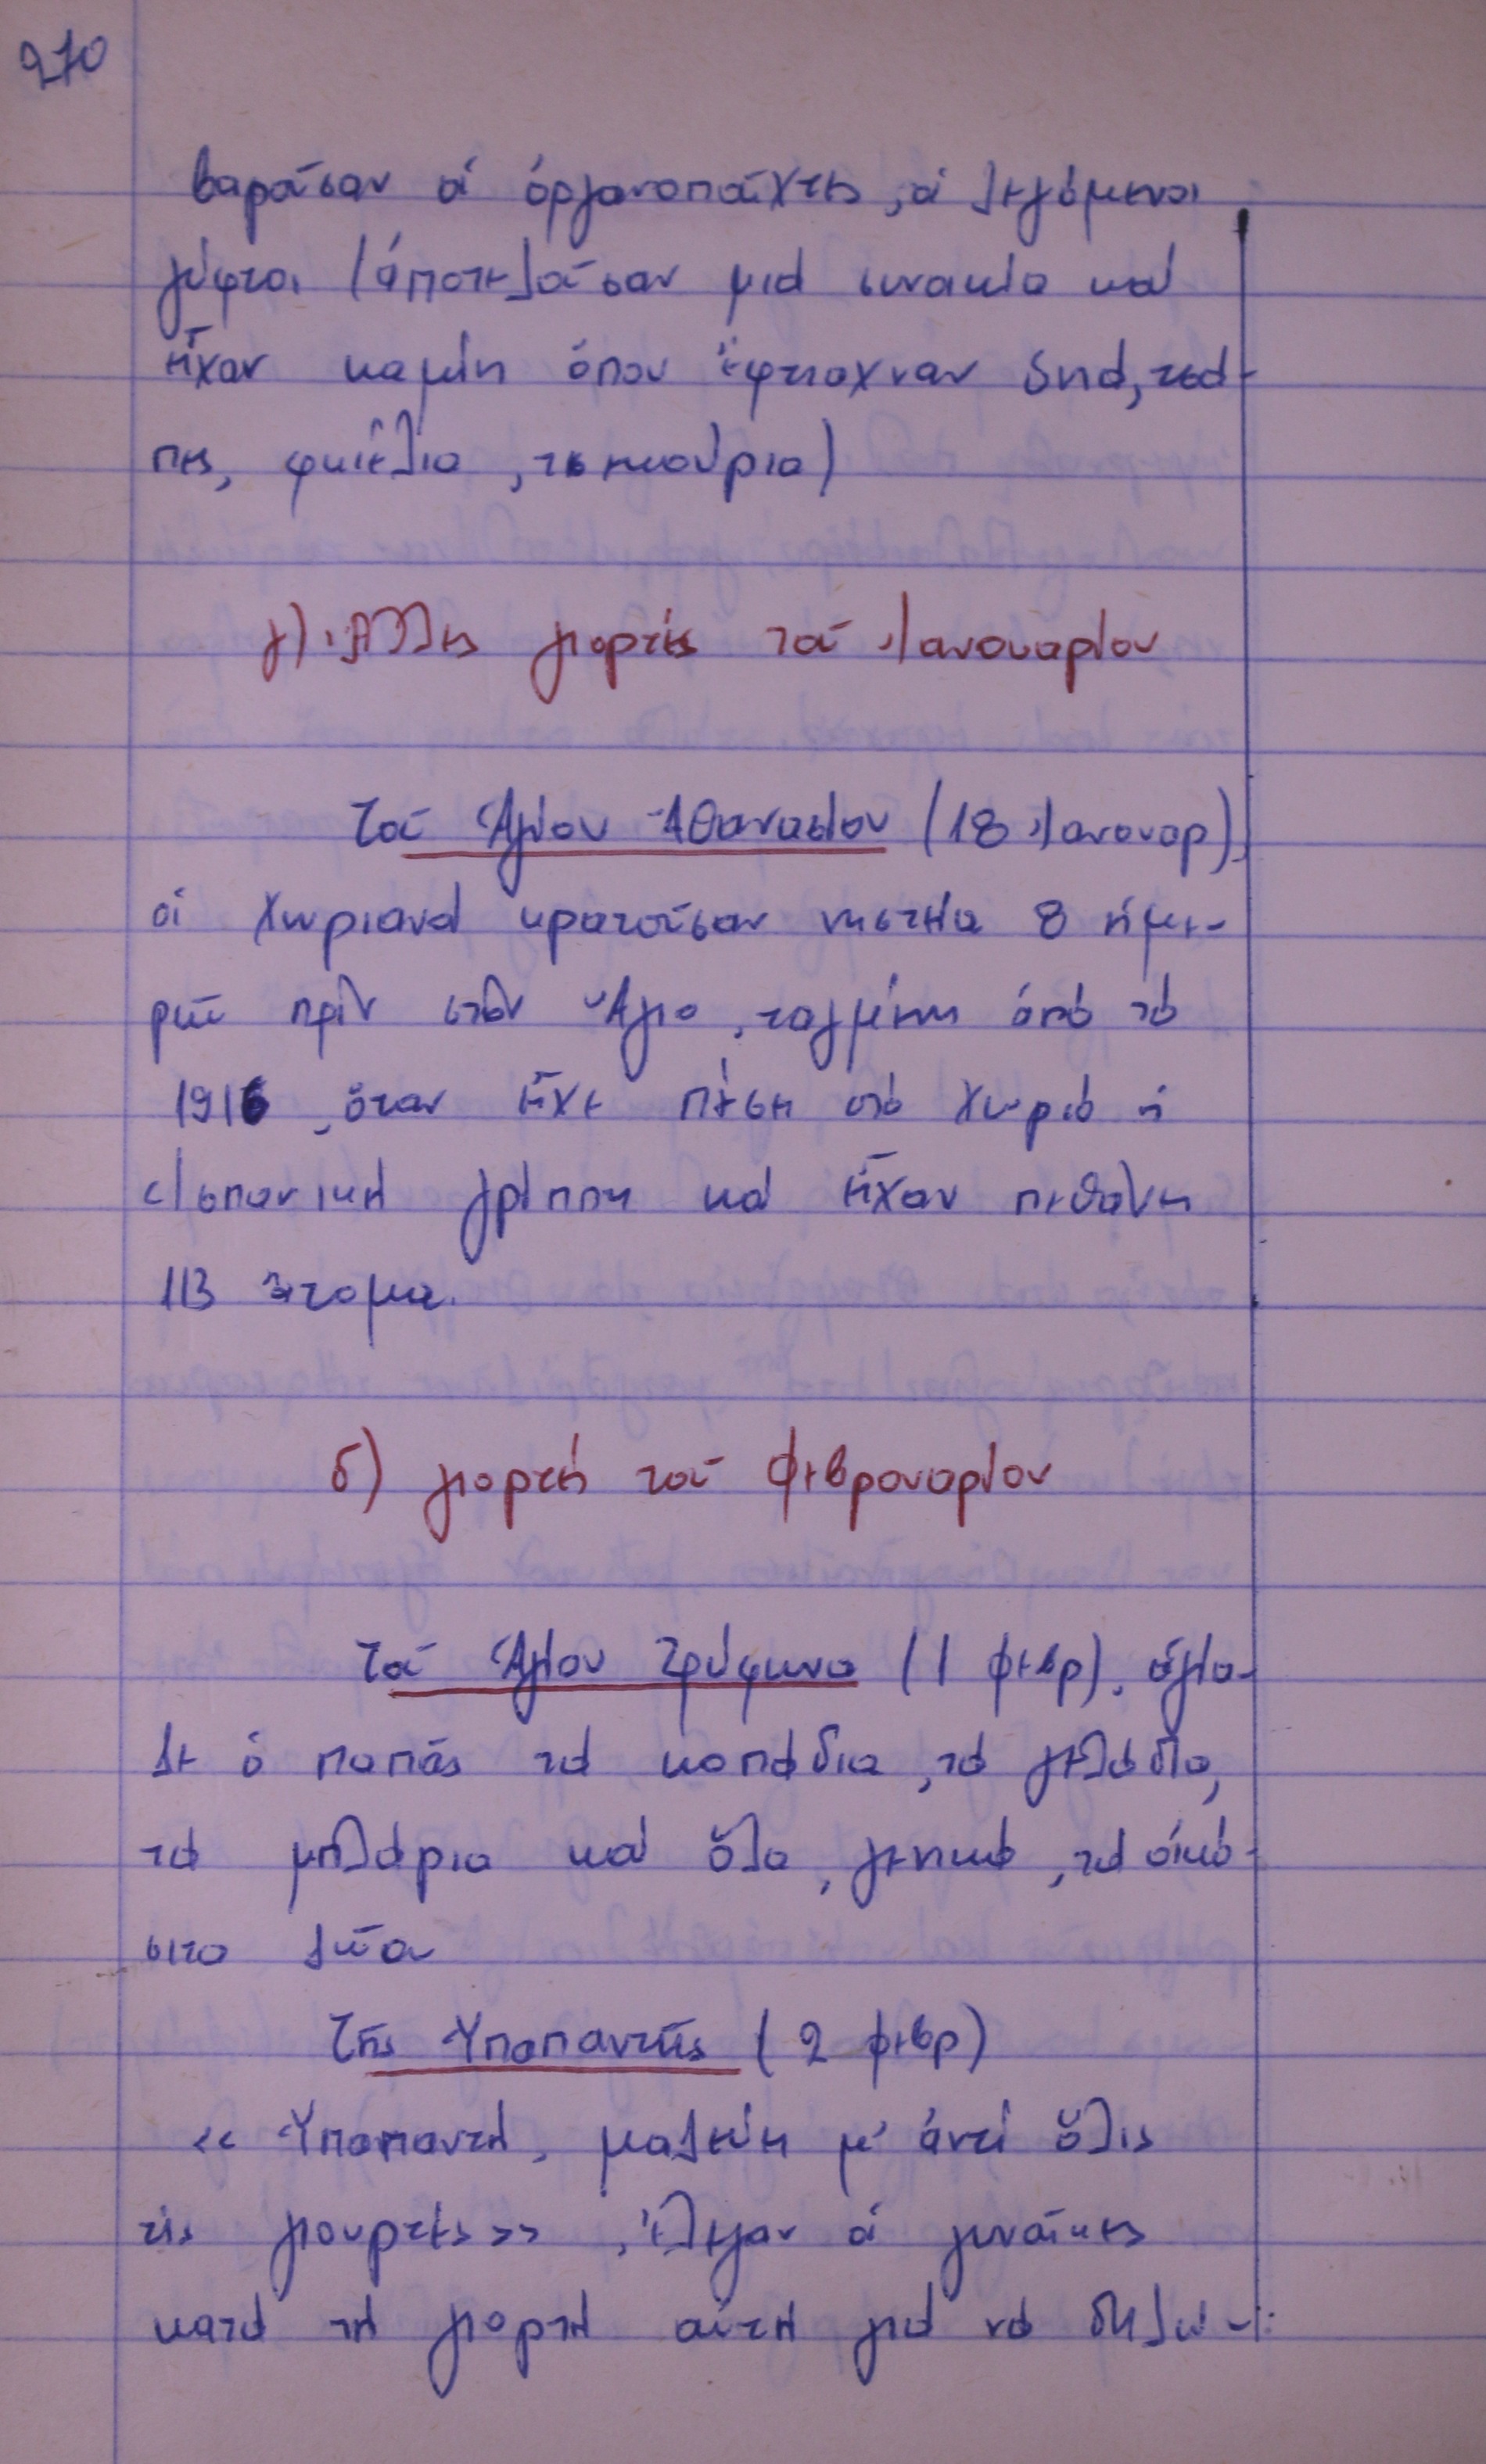 270
βαροῦσαν οἱ ὀργανοπαῖχτες, οἱ λεγόμενοι
γύφτοι (ἀποτελοῦσαν μιά συνοικία καί
εἶχαν καμίνι ὅπου ἔφτιαχναν ὑνιά, τσά-
πες, φκυέλια, τσεκούρια)
γ) Ἄλλες γιορτές τοῦ Ἰανουαρίου
Τοῦ Ἁγίου Ἀθανασίου (18 Ἰανουαρ),
οἱ χωριανοί κρατοῦσαν νηστεία 8 ἡμε-
ρῶν πρίν στόν Ἅγιο, ταγμένη ἀπό τό
1916, ὅταν εἶχε πέσει στό χωριό ἡ
Ἱσπανική γρίππη καί εἶχαν πεθάνει
113 ἄτομα.
δ) γιορτή τοῦ Φεβρουαρίου
Τοῦ Ἁγίου Τρύφωνα (1 φεβρ), ἁγία-
ζε ὁ παπάς τά κοπάδια, τά γελάδια,
τά μπλάρια καί ὅλα, γενικά, τά οἰκό-
σιτα ζῶα
Τῆς Ὑπαπαντῆς (2 φεβρ)
«Ὑπαπαντή, μαζεύει μ' ἀντί ὅλις
τίς γιουρτές», ἔλεγαν οἱ γυναῖκες
κατά τή γιορτή αὐτή γιά νά δηλώ-